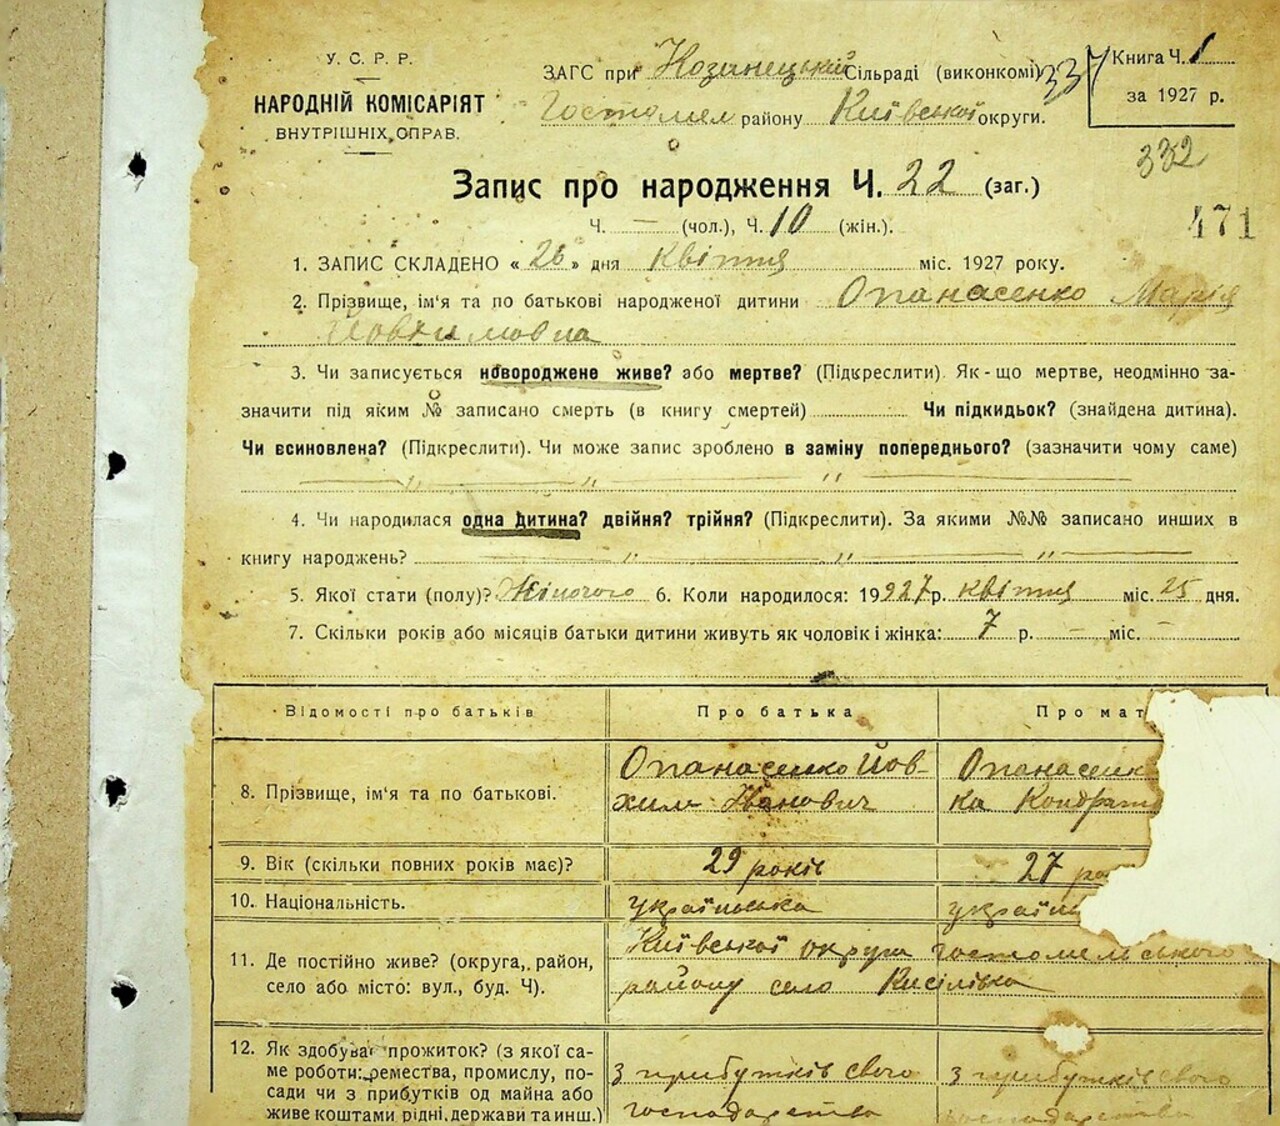 У. С. Р. Р.
НАРОДНІЙ КОМІСАРІЯТ
ВНУТРІШНІХ ОПРАВ.
ЗАГС при Козинецькій Сільраді (виконкомі) 337
Гостомел району Київської округи.
Книга Ч. 1
за 1927 р.
332
Запис про народження Ч. 22 (заг.)
471
Ч. — (чол.), Ч. 10 (жін.).
1. ЗАПИС СКЛАДЕНО « 26 » дня квітня міс. 1927 року.
2. Прізвище, ім'я та по батькові народженої дитини Опанасенко Марія
Йовхимовна
3. Чи записується новороджене живе? або мертве? (Підкреслити). Як-що мертве, неодмінно за-
значити під яким № записано смерть (в книгу смертей) Чи підкидьок? (знайдена дитина).
Чи всиновлена? (Підкреслити). Чи може запис зроблено в заміну попереднього? (зазначити чому саме)
— „ — „ — „ —
4. Чи народилася одна дитина? двійня? трійня? (Підкреслити). За якими №№ записано инших в
книгу народжень? — „ — „ — „ —
5. Якої стати (полу)? Жіночого 6. Коли народилося: 1927 р. квітня міс. 25 дня.
7. Скільки років або місяців батьки дитини живуть як чоловік і жінка: 7 р. — міс. —
Відомості про батьків Про батька Про мат
8. Прізвище, ім'я та по батькові. Опанасенко Йов- Опанасенк
хим Іванович ка Кондрат
9. Вік (скільки повних років має)? 29 років 27 ро
10. Національність. українська україн
11. Де постійно живе? (округа, район, Київської округи гостомельського
село або місто: вул., буд. Ч). району село Кисілівка
12. Як здобуває прожиток? (з якої са-
ме роботи: ремества, промислу, по- з прибутків свого з прибутків свого
сади чи з прибутків од майна або
живе коштами рідні, держави та инш.) господарства господарства